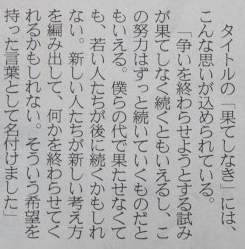 タイトルの「果てしなき」には、
こんな思いが込められている。
「争いを終わらせようとする試み
が果てしなく続くともいえるし、こ
の努力はずっと続いていくものだと
もいえる。僕らの代で果たせなくて
も、若い人たちが後に続くかもしれ
ない。新しい人たちが新しい考え方
を編み出して、何かを終わらせてく
れるかもしれない。そういう希望を
持った言葉として名付けました」